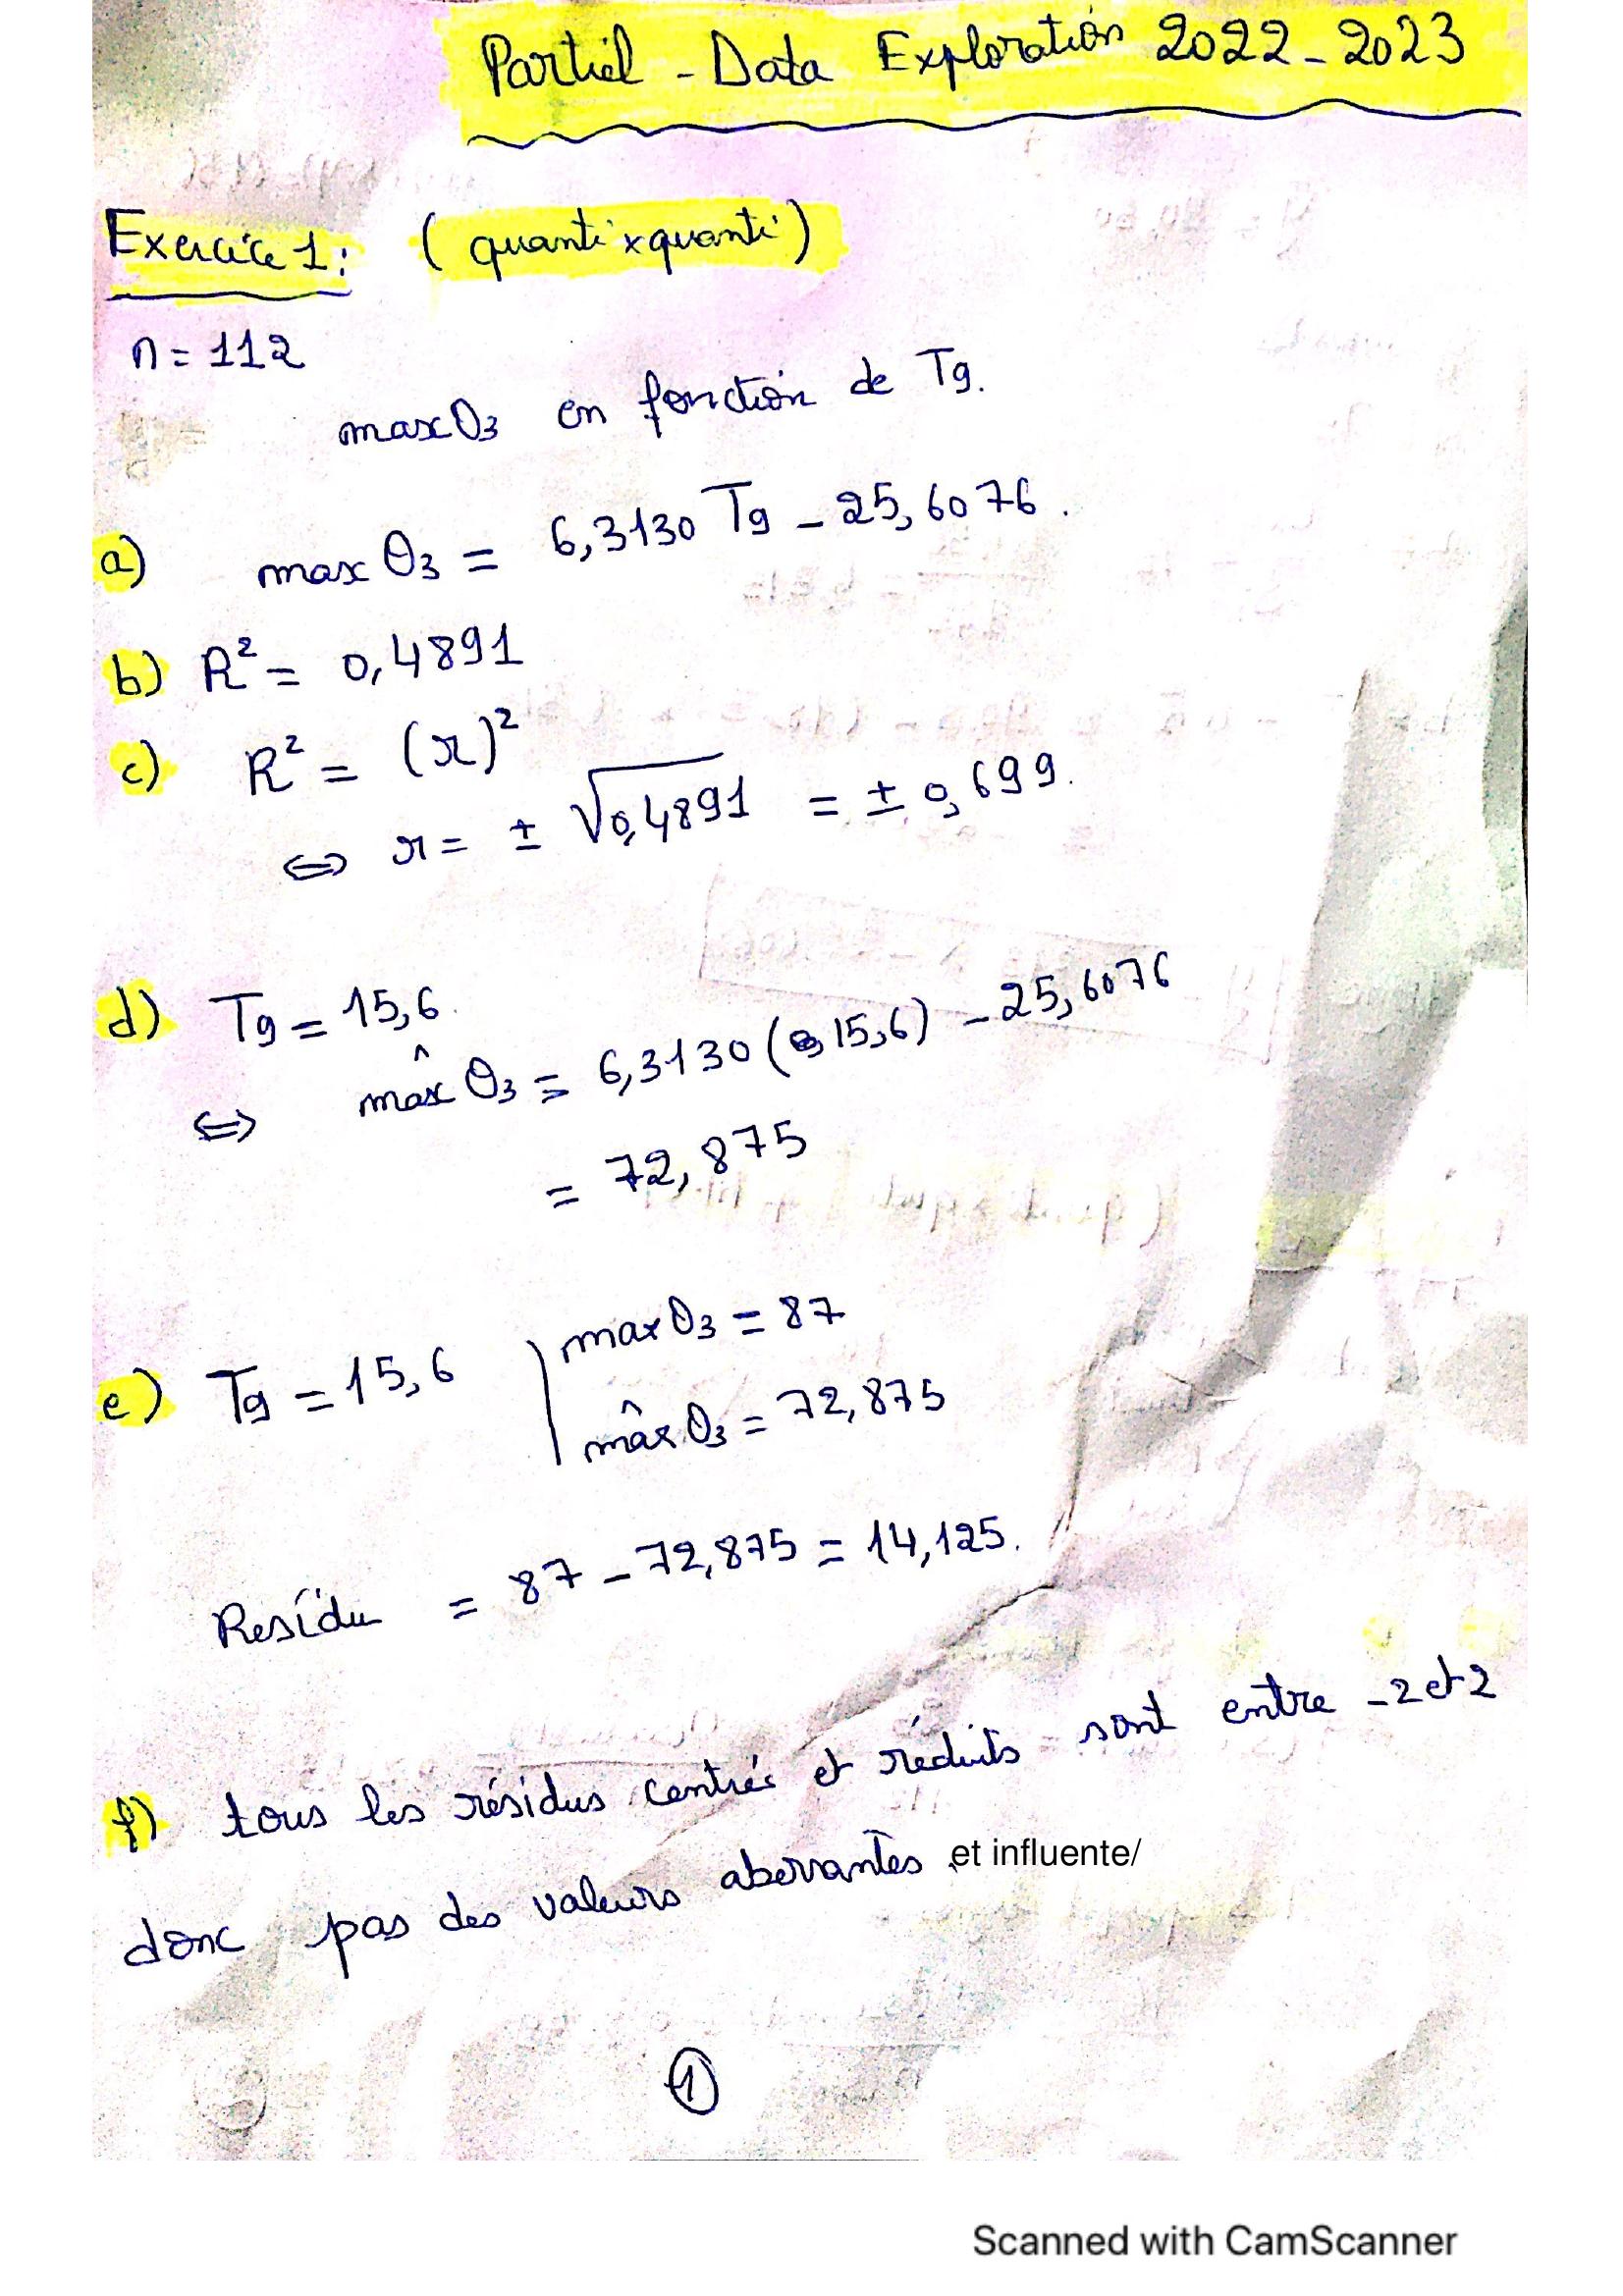 Partiel - Data Exploration 2022-2023
Exercice 1: (quanti x quanti)
n = 112
maxO3 en fonction de T9.
a) max O3 = 6,3130 T9 - 25,6076.
b) R² = 0,4891
c) R² = (r)²
⇔ r = ± √0,4891 = ± 0,699.
d) T9 = 15,6.
⇔ max̂ O3 = 6,3130 (15,6) - 25,6076
= 72,875
e) T9 = 15,6 | maxO3 = 87
max̂ O3 = 72,875
Résidu = 87 - 72,875 = 14,125.
f) tous les résidus centrés et réduits sont entre -2 et 2
donc pas des valeurs aberrantes et influente/
1
Scanned with CamScanner